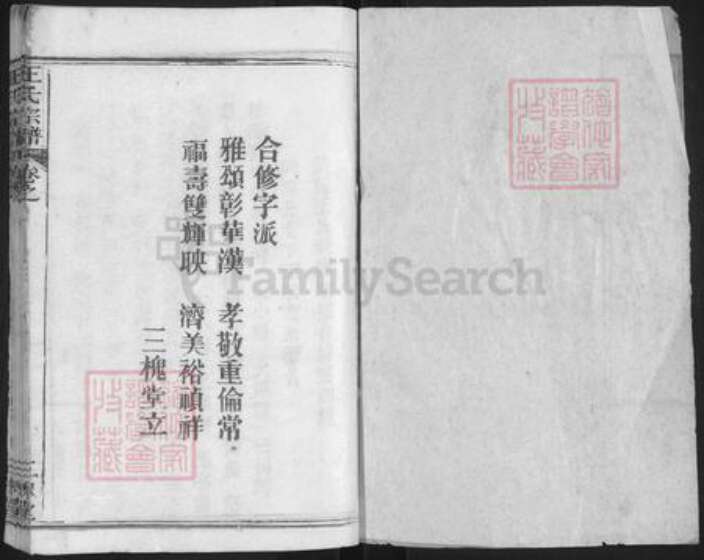 合修字派
雅頌彰華漢 孝敬重倫常
福壽雙輝映 濟美裕禎祥
三槐堂立
王氏宗譜
卷之
FamilySearch